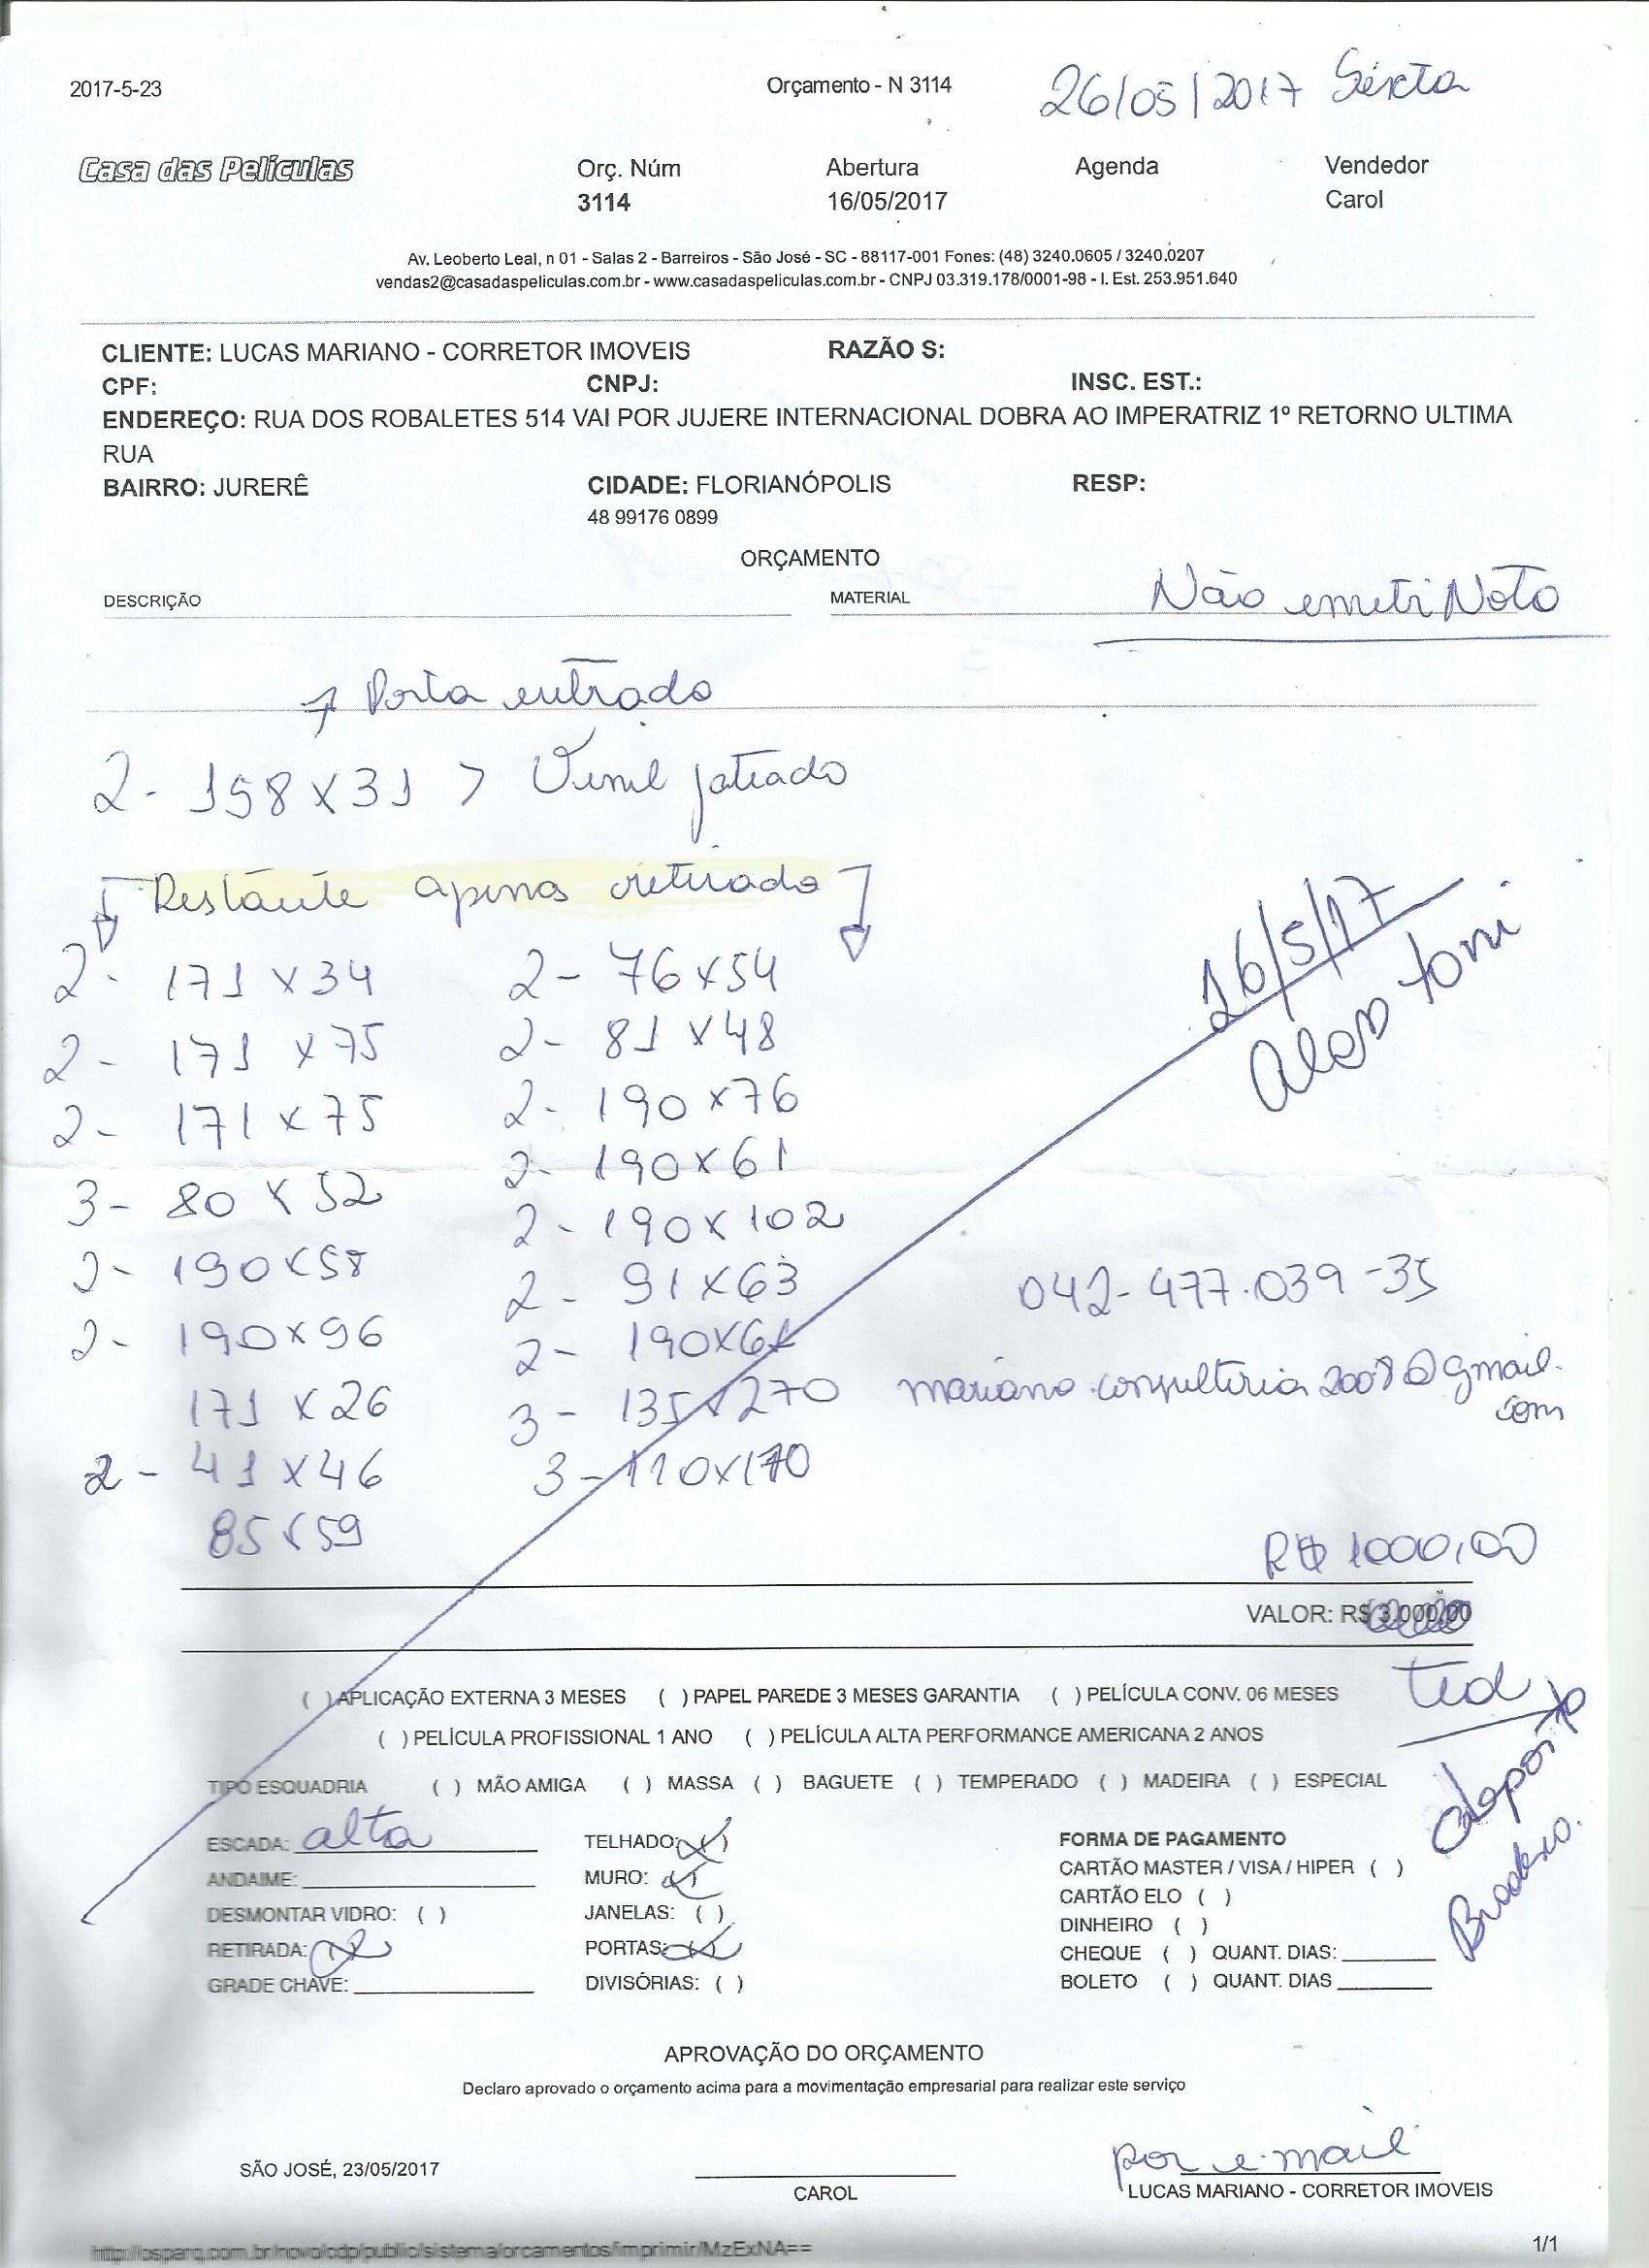 2017-5-23 Orçamento - N 3114 26/05/2017 Sexta
Casa das Películas Orç. Núm Abertura Agenda Vendedor
3114 16/05/2017 Carol
Av. Leoberto Leal, n 01 - Salas 2 - Barreiros - São José - SC - 88117-001 Fones: (48) 3240.0605 / 3240.0207
vendas2@casadaspeliculas.com.br - www.casadaspeliculas.com.br - CNPJ 03.319.178/0001-98 - I. Est. 253.951.640
CLIENTE: LUCAS MARIANO - CORRETOR IMOVEIS RAZÃO S:
CPF: CNPJ: INSC. EST.:
ENDEREÇO: RUA DOS ROBALETES 514 VAI POR JUJERE INTERNACIONAL DOBRA AO IMPERATRIZ 1º RETORNO ULTIMA
RUA
BAIRRO: JURERÊ CIDADE: FLORIANÓPOLIS RESP:
48 99176 0899
ORÇAMENTO
DESCRIÇÃO MATERIAL Não emiti Nota
Porta entrada
2- 158x31 > Vinil jateado
Restante apenas retirada
2- 171 x 34 2- 76x54
2- 171 x 75 2- 81 x 48
2- 171 x 75 2- 190 x 76
3- 80 x 52 2- 190x61
2- 190x58 2- 190x102
2- 190x96 2- 91x63
171 x 26 2- 190x61
2- 41 x 46 3- 135x270
85x59 3- 110x170
26/5/17
Toni
042-477.039-35
mariano.consultoria2008@gmail.
com
R$ 1000,00
VALOR: R$ 3.000,00
Ted
deposito
Bradesco.
( ) APLICAÇÃO EXTERNA 3 MESES ( ) PAPEL PAREDE 3 MESES GARANTIA ( ) PELÍCULA CONV. 06 MESES
( ) PELÍCULA PROFISSIONAL 1 ANO ( ) PELÍCULA ALTA PERFORMANCE AMERICANA 2 ANOS
TIPO ESQUADRIA ( ) MÃO AMIGA ( ) MASSA ( ) BAGUETE ( ) TEMPERADO ( ) MADEIRA ( ) ESPECIAL
ESCADA: alta TELHADO: (x) FORMA DE PAGAMENTO
ANDAIME: MURO: (x) CARTÃO MASTER / VISA / HIPER ( )
DESMONTAR VIDRO: ( ) JANELAS: ( ) CARTÃO ELO ( )
RETIRADA: (x) PORTAS: (x) DINHEIRO ( )
GRADE CHAVE: DIVISÓRIAS: ( ) CHEQUE ( ) QUANT. DIAS:
BOLETO ( ) QUANT. DIAS
APROVAÇÃO DO ORÇAMENTO
Declaro aprovado o orçamento acima para a movimentação empresarial para realizar este serviço
SÃO JOSÉ, 23/05/2017 por e-mail
CAROL LUCAS MARIANO - CORRETOR IMOVEIS
http://osparq.com.br/novo/cdp/public/sistema/orcamentos/imprimir/MzExNA== 1/1